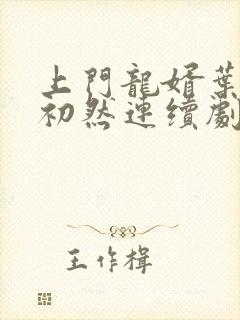 上門龍婿葉
初然連續劇
王作楫